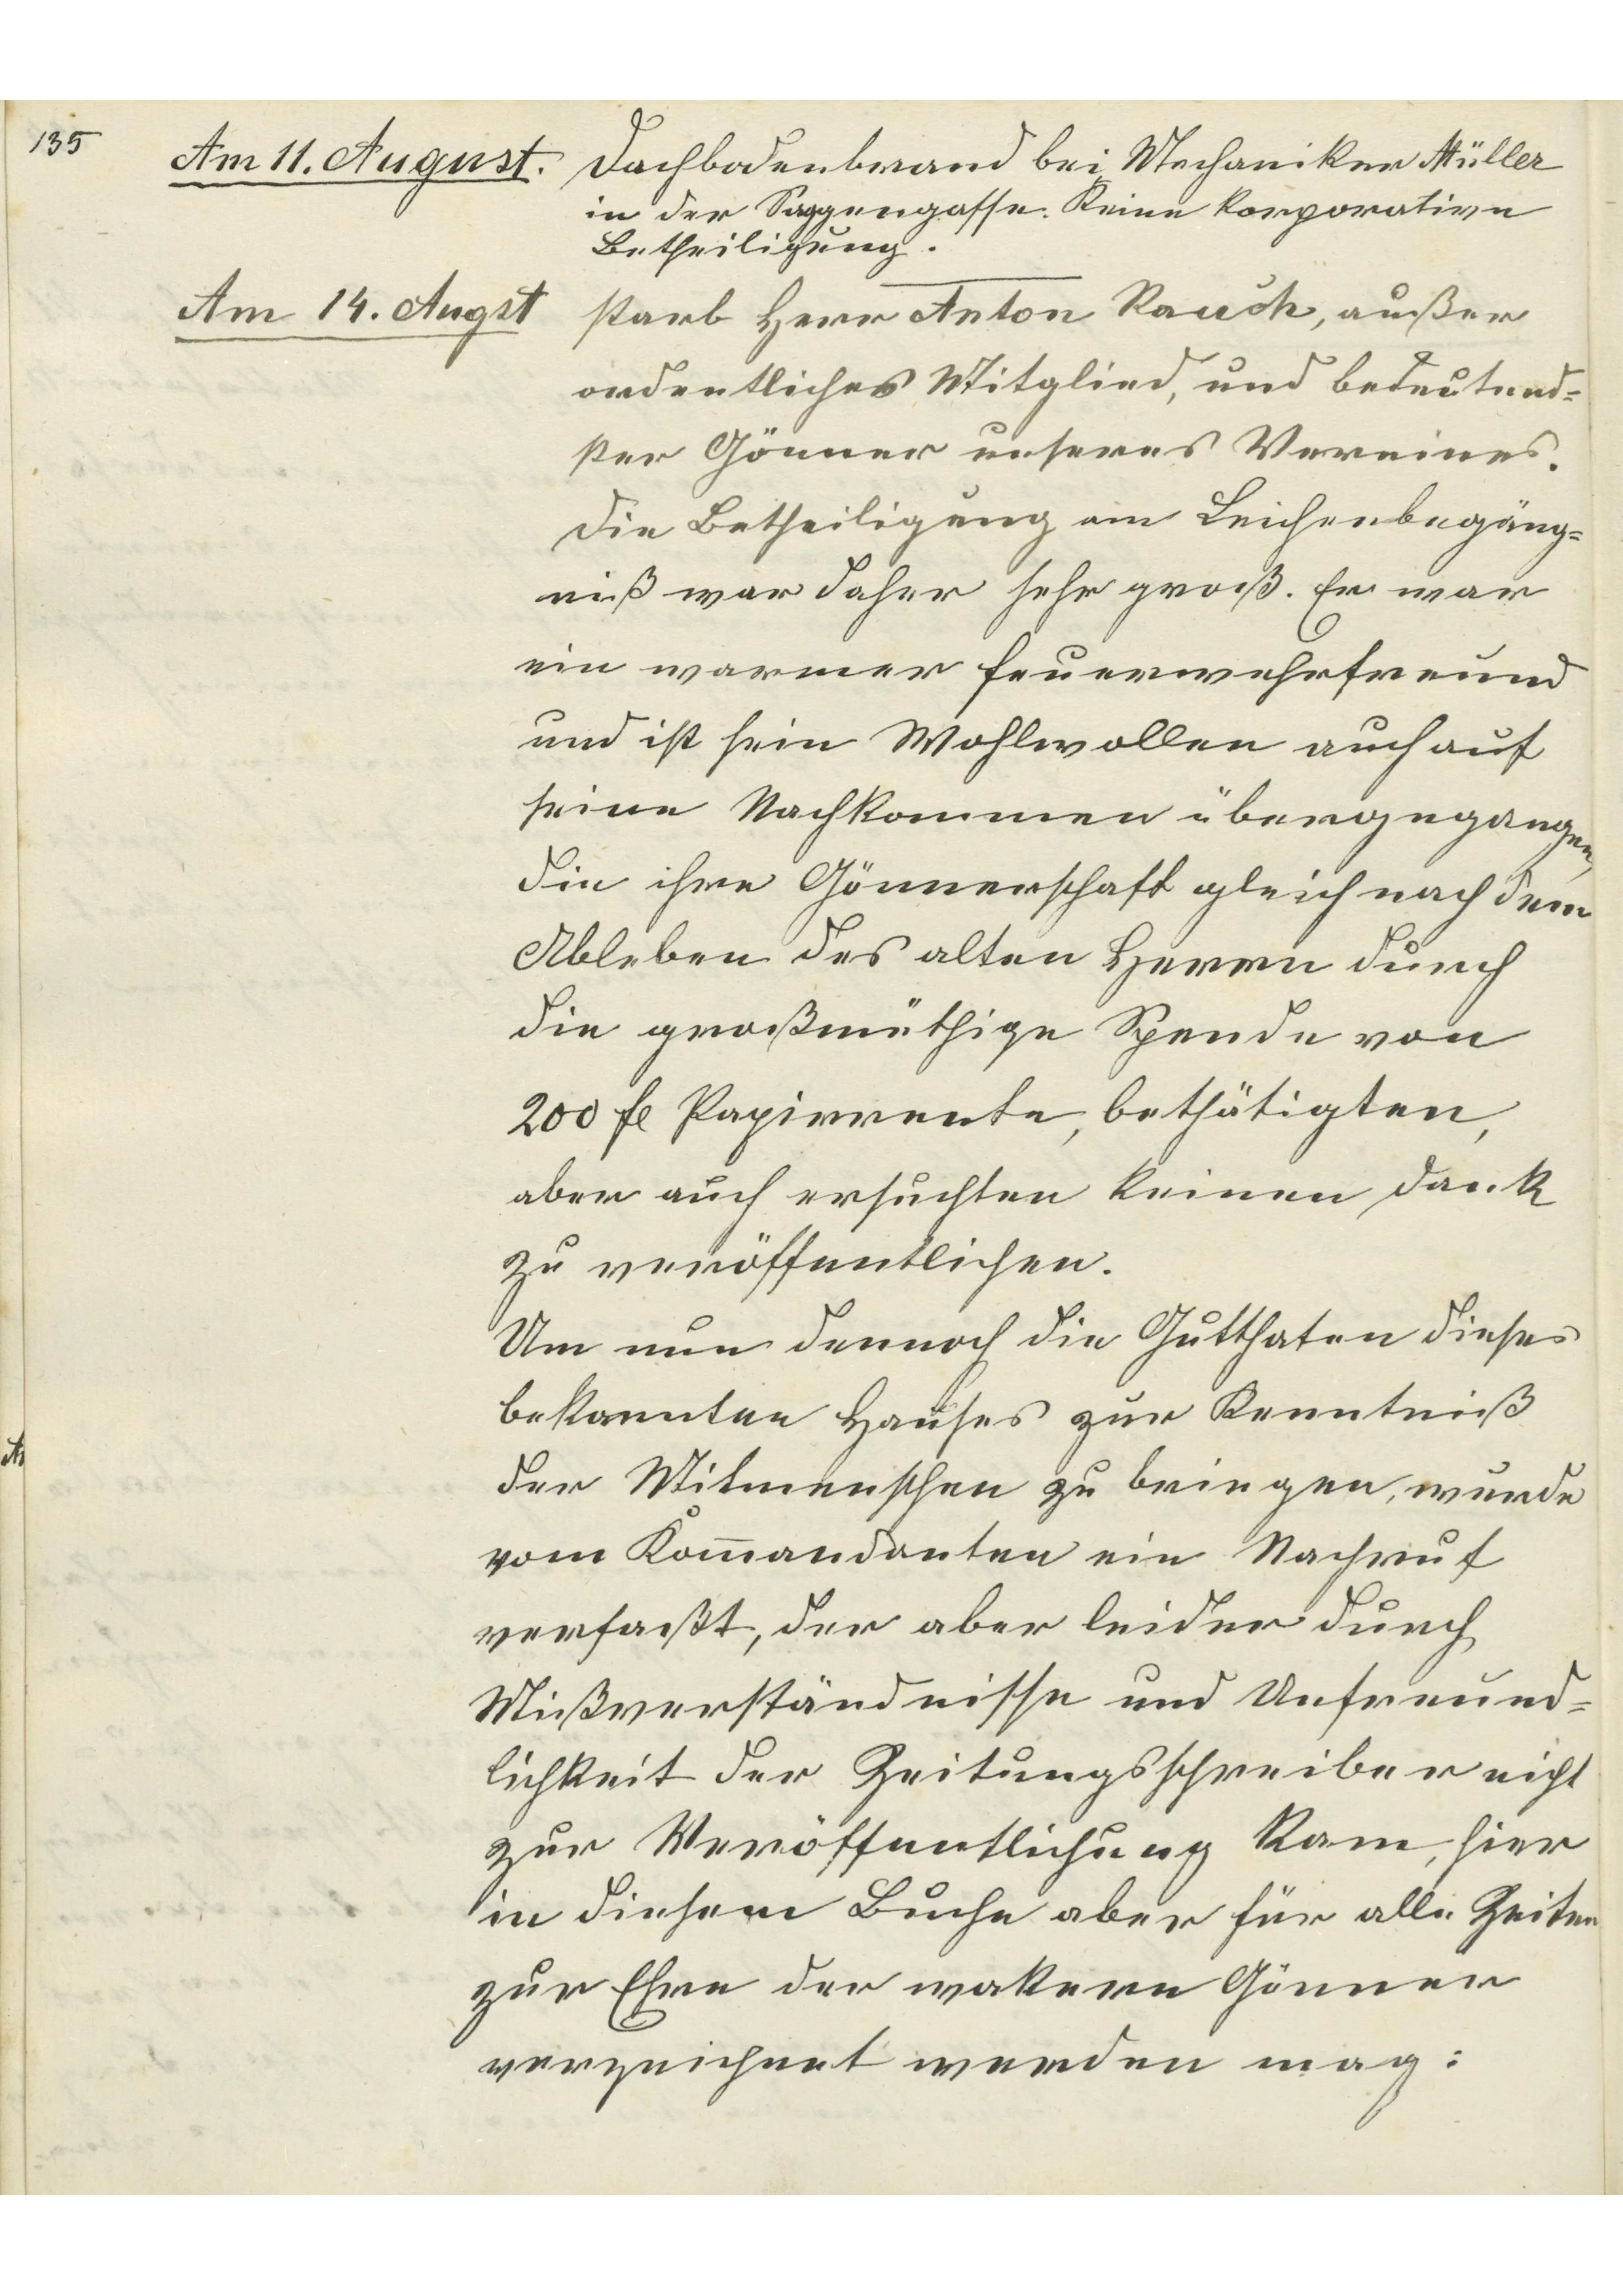 135
Am 11. August. Dachbodenbrand bei Mechaniker Müller
in der Saggengasse. Keine korporative
Betheiligung.
Am 14. Augst starb Herr Anton Rauch, außer
ordentliches Mitglied, und bedeutend=
ster Gönner unseres Vereines.
Die Betheiligung am Leichenbegäng=
niß war daher sehr groß. Er war
ein warmer Feuerwehrfreund
und ist sein Wohlwollen auch auf
seine Nachkommen übergegangen,
die ihre Gönnerschaft gleich nach dem
Ableben des alten Herrn durch
die großmüthige Spende von
200 fl Papierrente, bethätigten,
aber auch ersuchten keinen Dank
zu veröffentlichen.
Um nun dennoch die Gutthaten dieses
bekannten Hauses zur Kenntniß
der Mitmenschen zu bringen, wurde
vom Kom̅andanten ein Nachruf
verfaßt, der aber leider durch
Mißverständnisse und Unfreund=
lichkeit der Zeitungsschreiber nicht
zur Veröffentlichung kam, hier
in diesem Buche aber für alle Zeiten
zur Ehre der wakeren Gönner
verzeichnet werden mag: